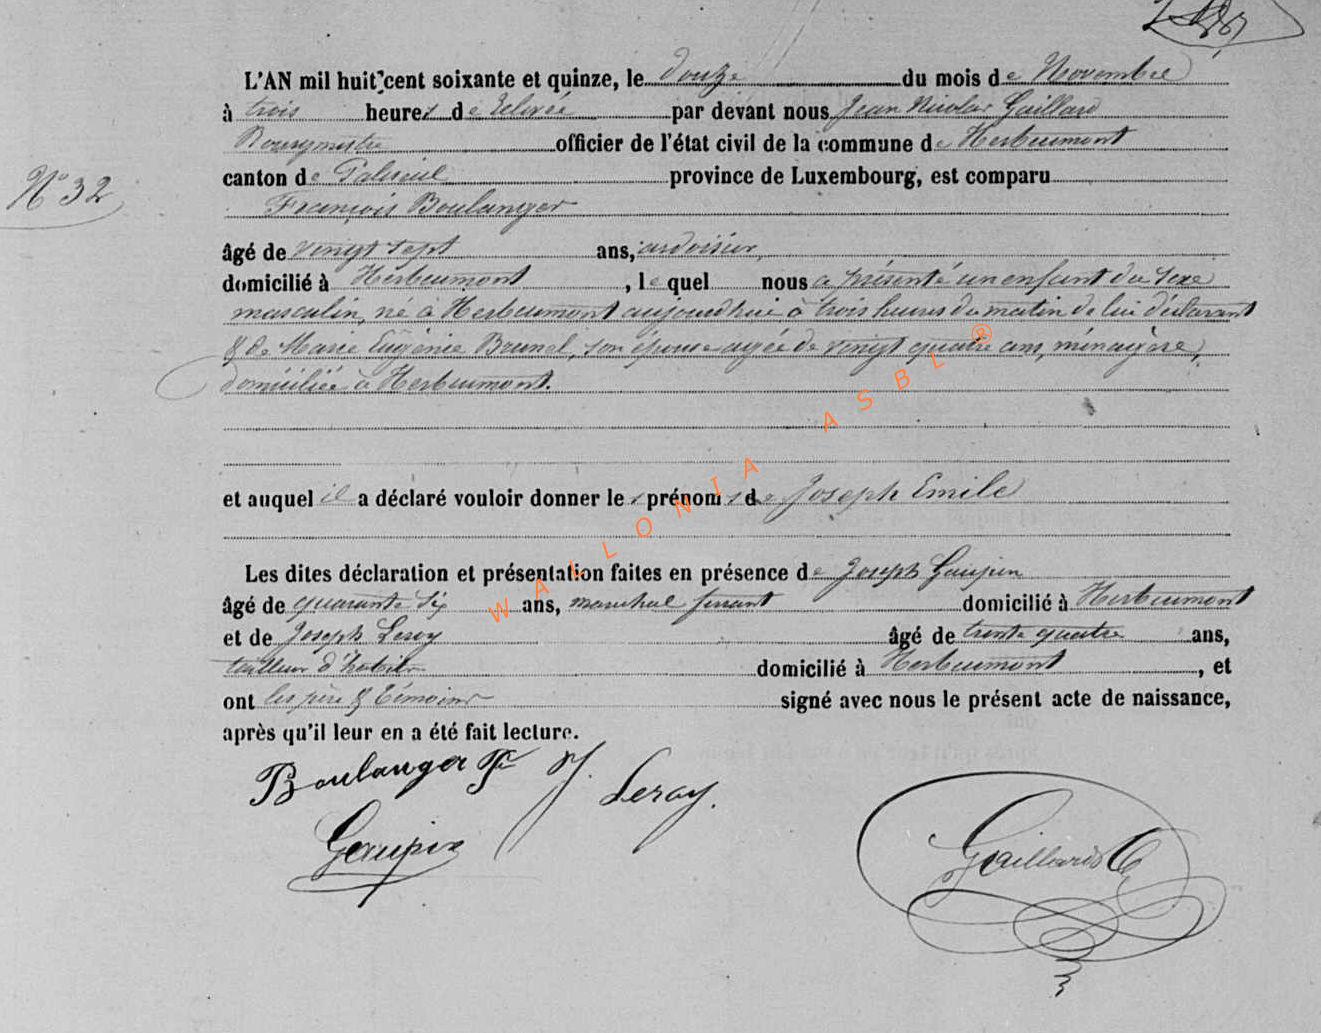 L'AN mil huit cent soixante et quinze, le douze du mois de Novembre
à trois heures de relevée par devant nous Jean Nicolas Gaillard
Bourgmestre officier de l'état civil de la commune de Herbeumont
N° 32
canton de Paliseul province de Luxembourg, est comparu
François Boulanger
âgé de vingt sept ans, ardoisier,
domicilié à Herbeumont, lequel nous a présenté un enfant du sexe
masculin, né à Herbeumont aujourd'hui à trois heures du matin de lui déclarant
& de Marie Eugénie Brunel, son épouse agée de vingt quatre ans, ménagère,
domiciliée à Herbeumont.
et auquel il a déclaré vouloir donner les prénoms de Joseph Emile
Les dites déclaration et présentation faites en présence de Joseph Gaupin
âgé de quarante six ans, maréchal ferrant domicilié à Herbeumont
et de Joseph Leroy âgé de trente quatre ans,
tailleur d'habits domicilié à Herbeumont, et
ont les père & témoins signé avec nous le présent acte de naissance,
après qu'il leur en a été fait lecture.
Boulanger F J. Leroy.
Gaupin
Gaillard
WALLONIA ASBL ®